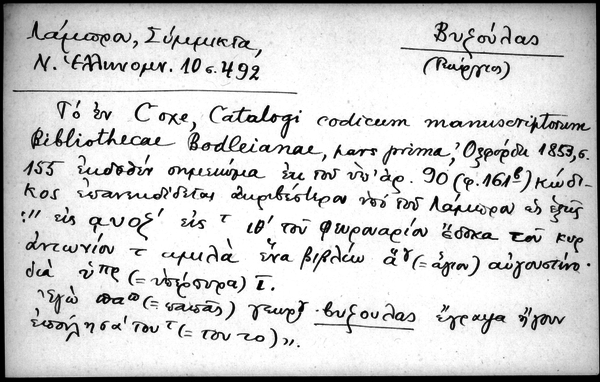 Λάμπρου, Σύμμικτα,
Ν. Ἑλληνομν. 10 σ. 492
Βυζούλας
(Γεώργιος)
Τὸ ἐν Coxe, Catalogi codicum manuscriptorum
Bibliothecae Bodleianae, pars prima, Ὀξφόρδη 1853, σ.
155 ἐκδοθὲν σημείωμα ἐκ τοῦ ὑπ' ἀρ. 90 (φ. 161β) κώδι-
κος ἐπανεκδίδεται ἀκριβέστερον ὑπὸ τοῦ Λάμπρου ὡς ἑξῆς
:" εἰς αφοξ' εἰς τ ιθ' τοῦ φωρουαρίου ἔδοκα τοῦ κυρ
ἀντωνίου τ ἀμιλὰ ἕνα βιβλίω ἅγ (= ἅγιον) αὐγουστίνο.
διὰ ὑπρ (= ὑπέρπυρα) Γ.
Ἐγὼ παπ (= παπᾶς) γεωργ βυζουλας ἔγραψα ἤγουν
ἐπούλησα του τ (= του το)».